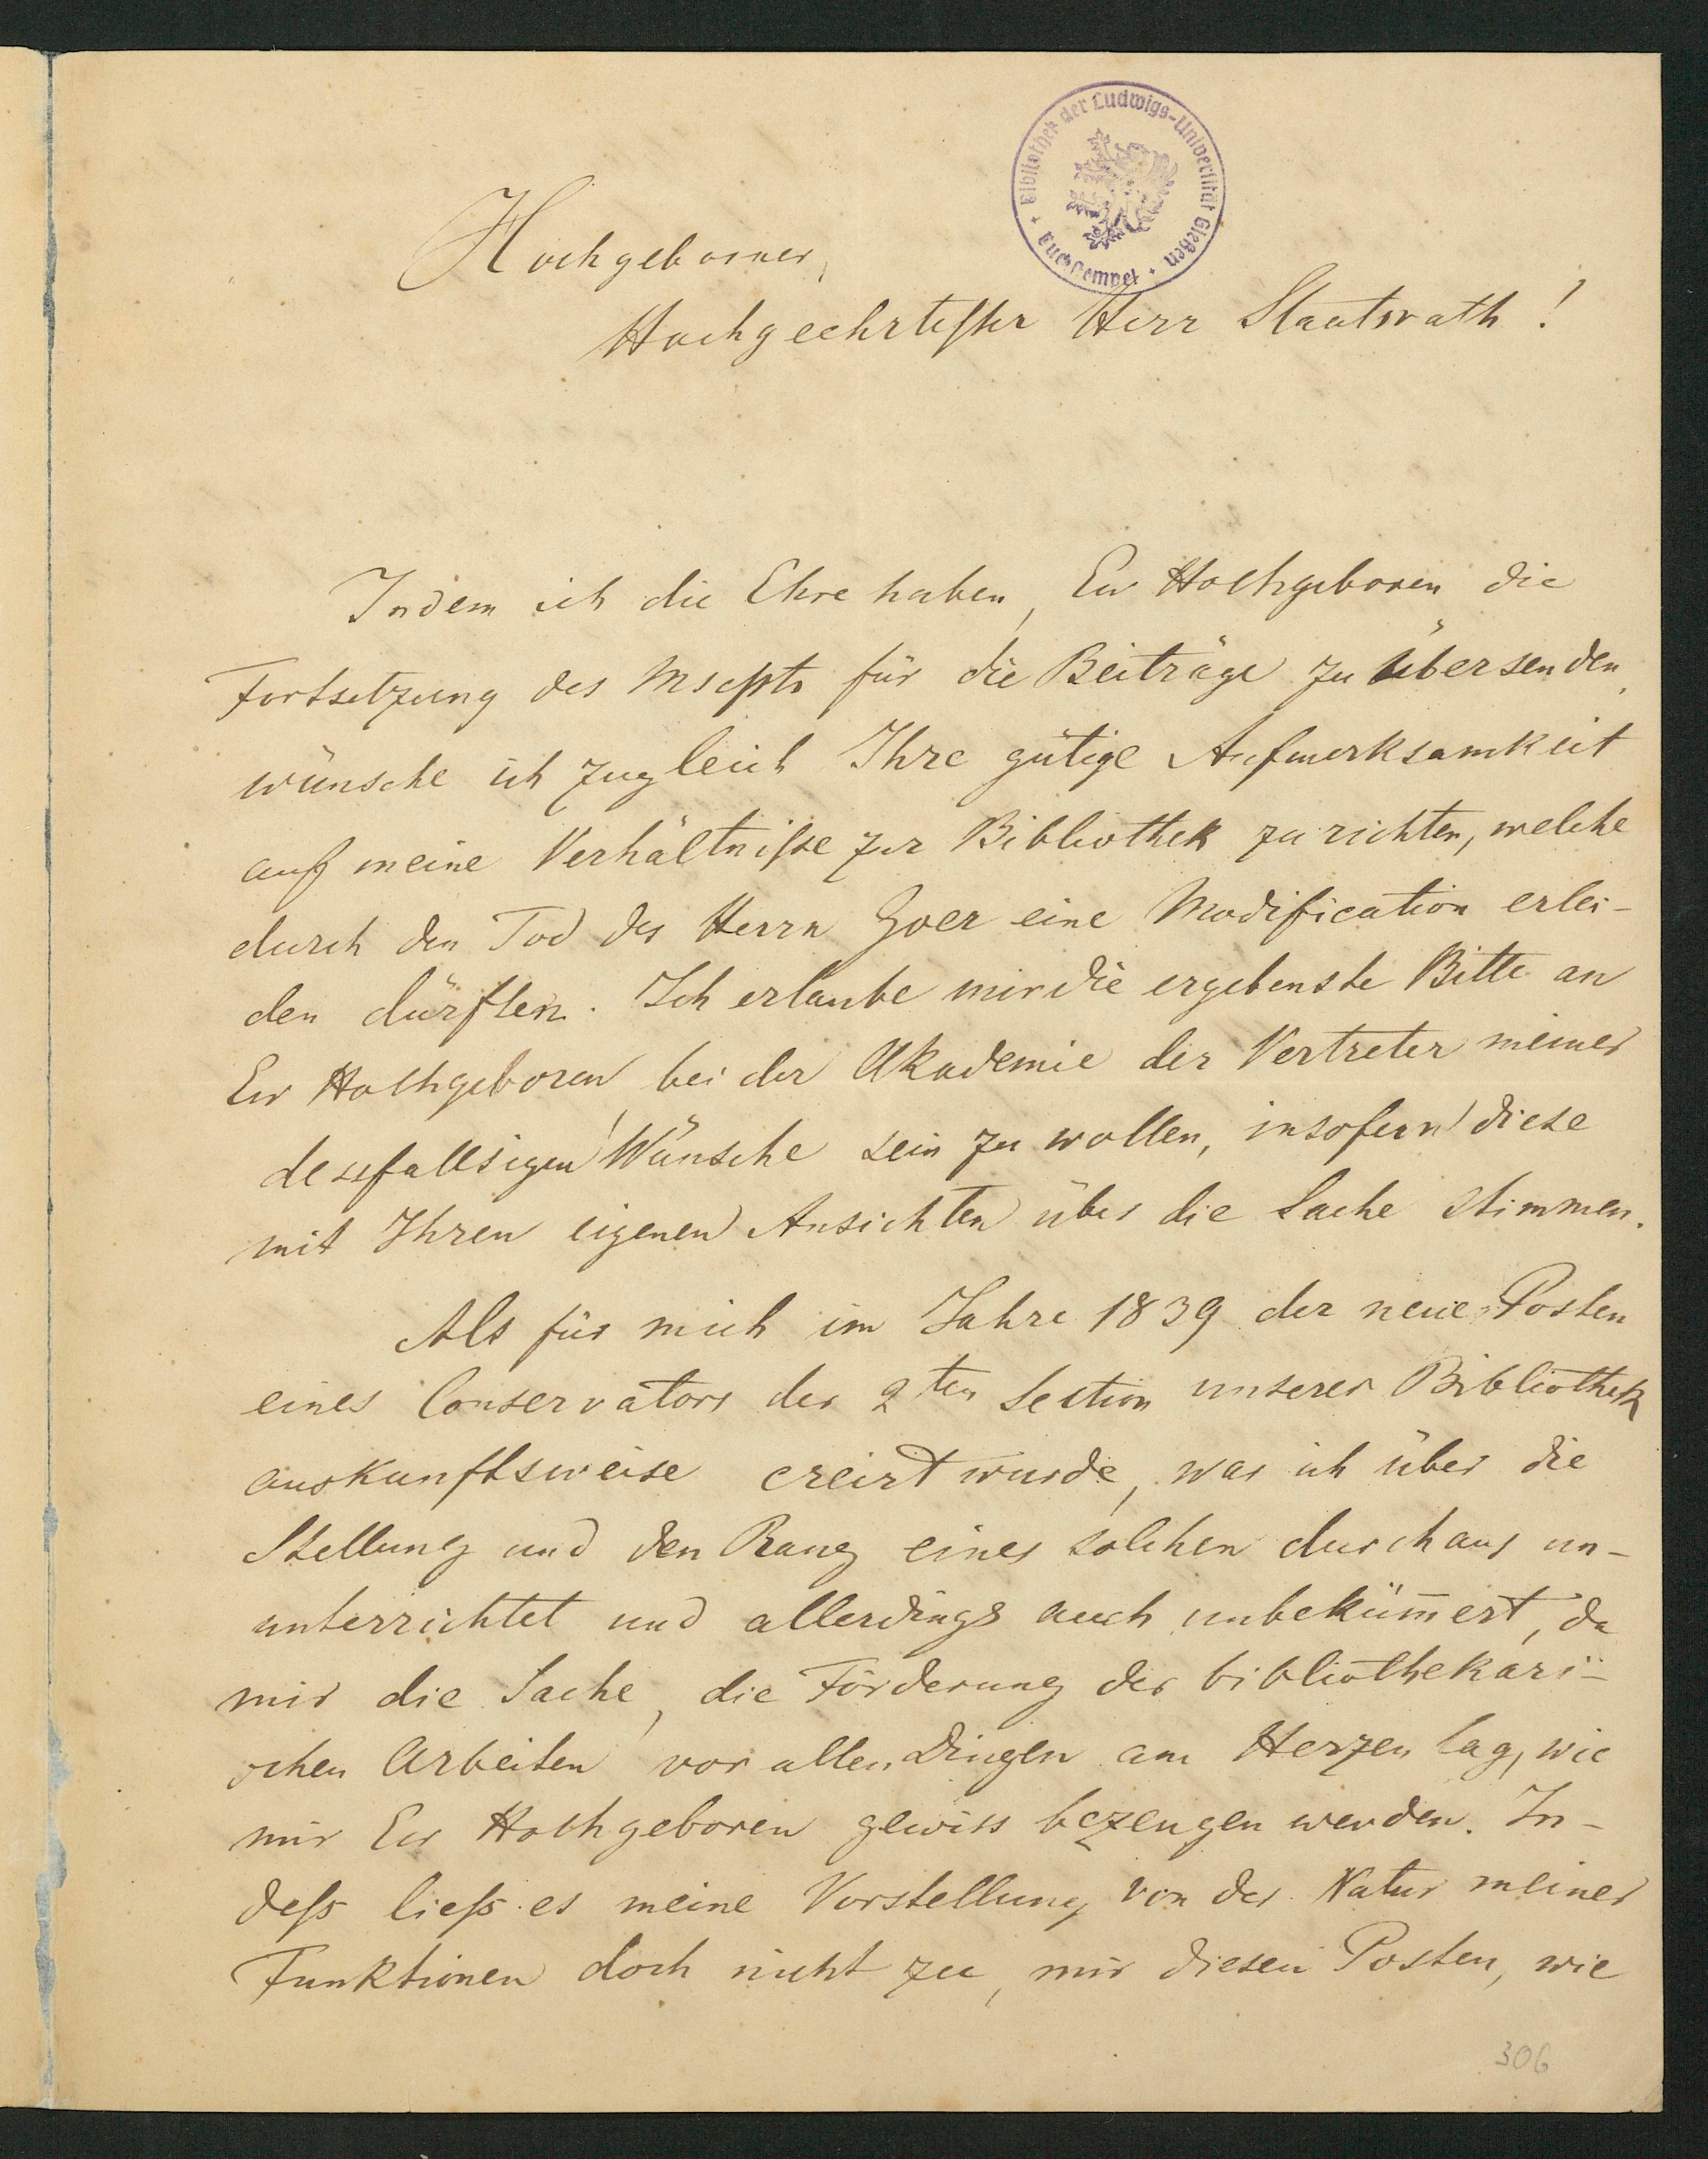 Bibliothek der Ludwigs-Universität Gießen
Tauschstempel
Hochgeborner,
Hochgeehrtester Herr Staatsrath!
Indem ich die Ehre haben, Ew Hochgeboren die
Fortsetzung des Mscpts für die Beiträge zu übersenden,
wünsche ich zugleich Ihre gütige Aufmerksamkeit
auf meine Verhältnisse zur Bibliothek zu richten, welche
durch den Tod des Herrn eine Modification erlei-
den dürften. Ich erlaube mir die ergebenste Bitte an
Ew Hochgeboren, bei der Akademie der Vertreter meiner
dessfallsigen Wünsche sein zu wollen, insofern diese
mit Ihren eigenen Ansichten über die Sache stimmen.
Als für mich im Jahre 1839 der neue Posten
eines Conservators der 2ten Section unserer Bibliothek
auskunftsweise creirt wurde, war ich über die
Stellung und den Rang eines solchen durchaus un-
unterrichtet und allerdings auch unbekümert, da
mir die Sache, die Förderung der bibliothekari-
schen Arbeiten vor allen Dingen am Herzen lag, wie
mir Ew Hochgeboren gewiss bezeugen werden. In-
dess liess es meine Vorstellung von der Natur meiner
Funktionen doch nicht zu, mir diesen Posten, wie
306